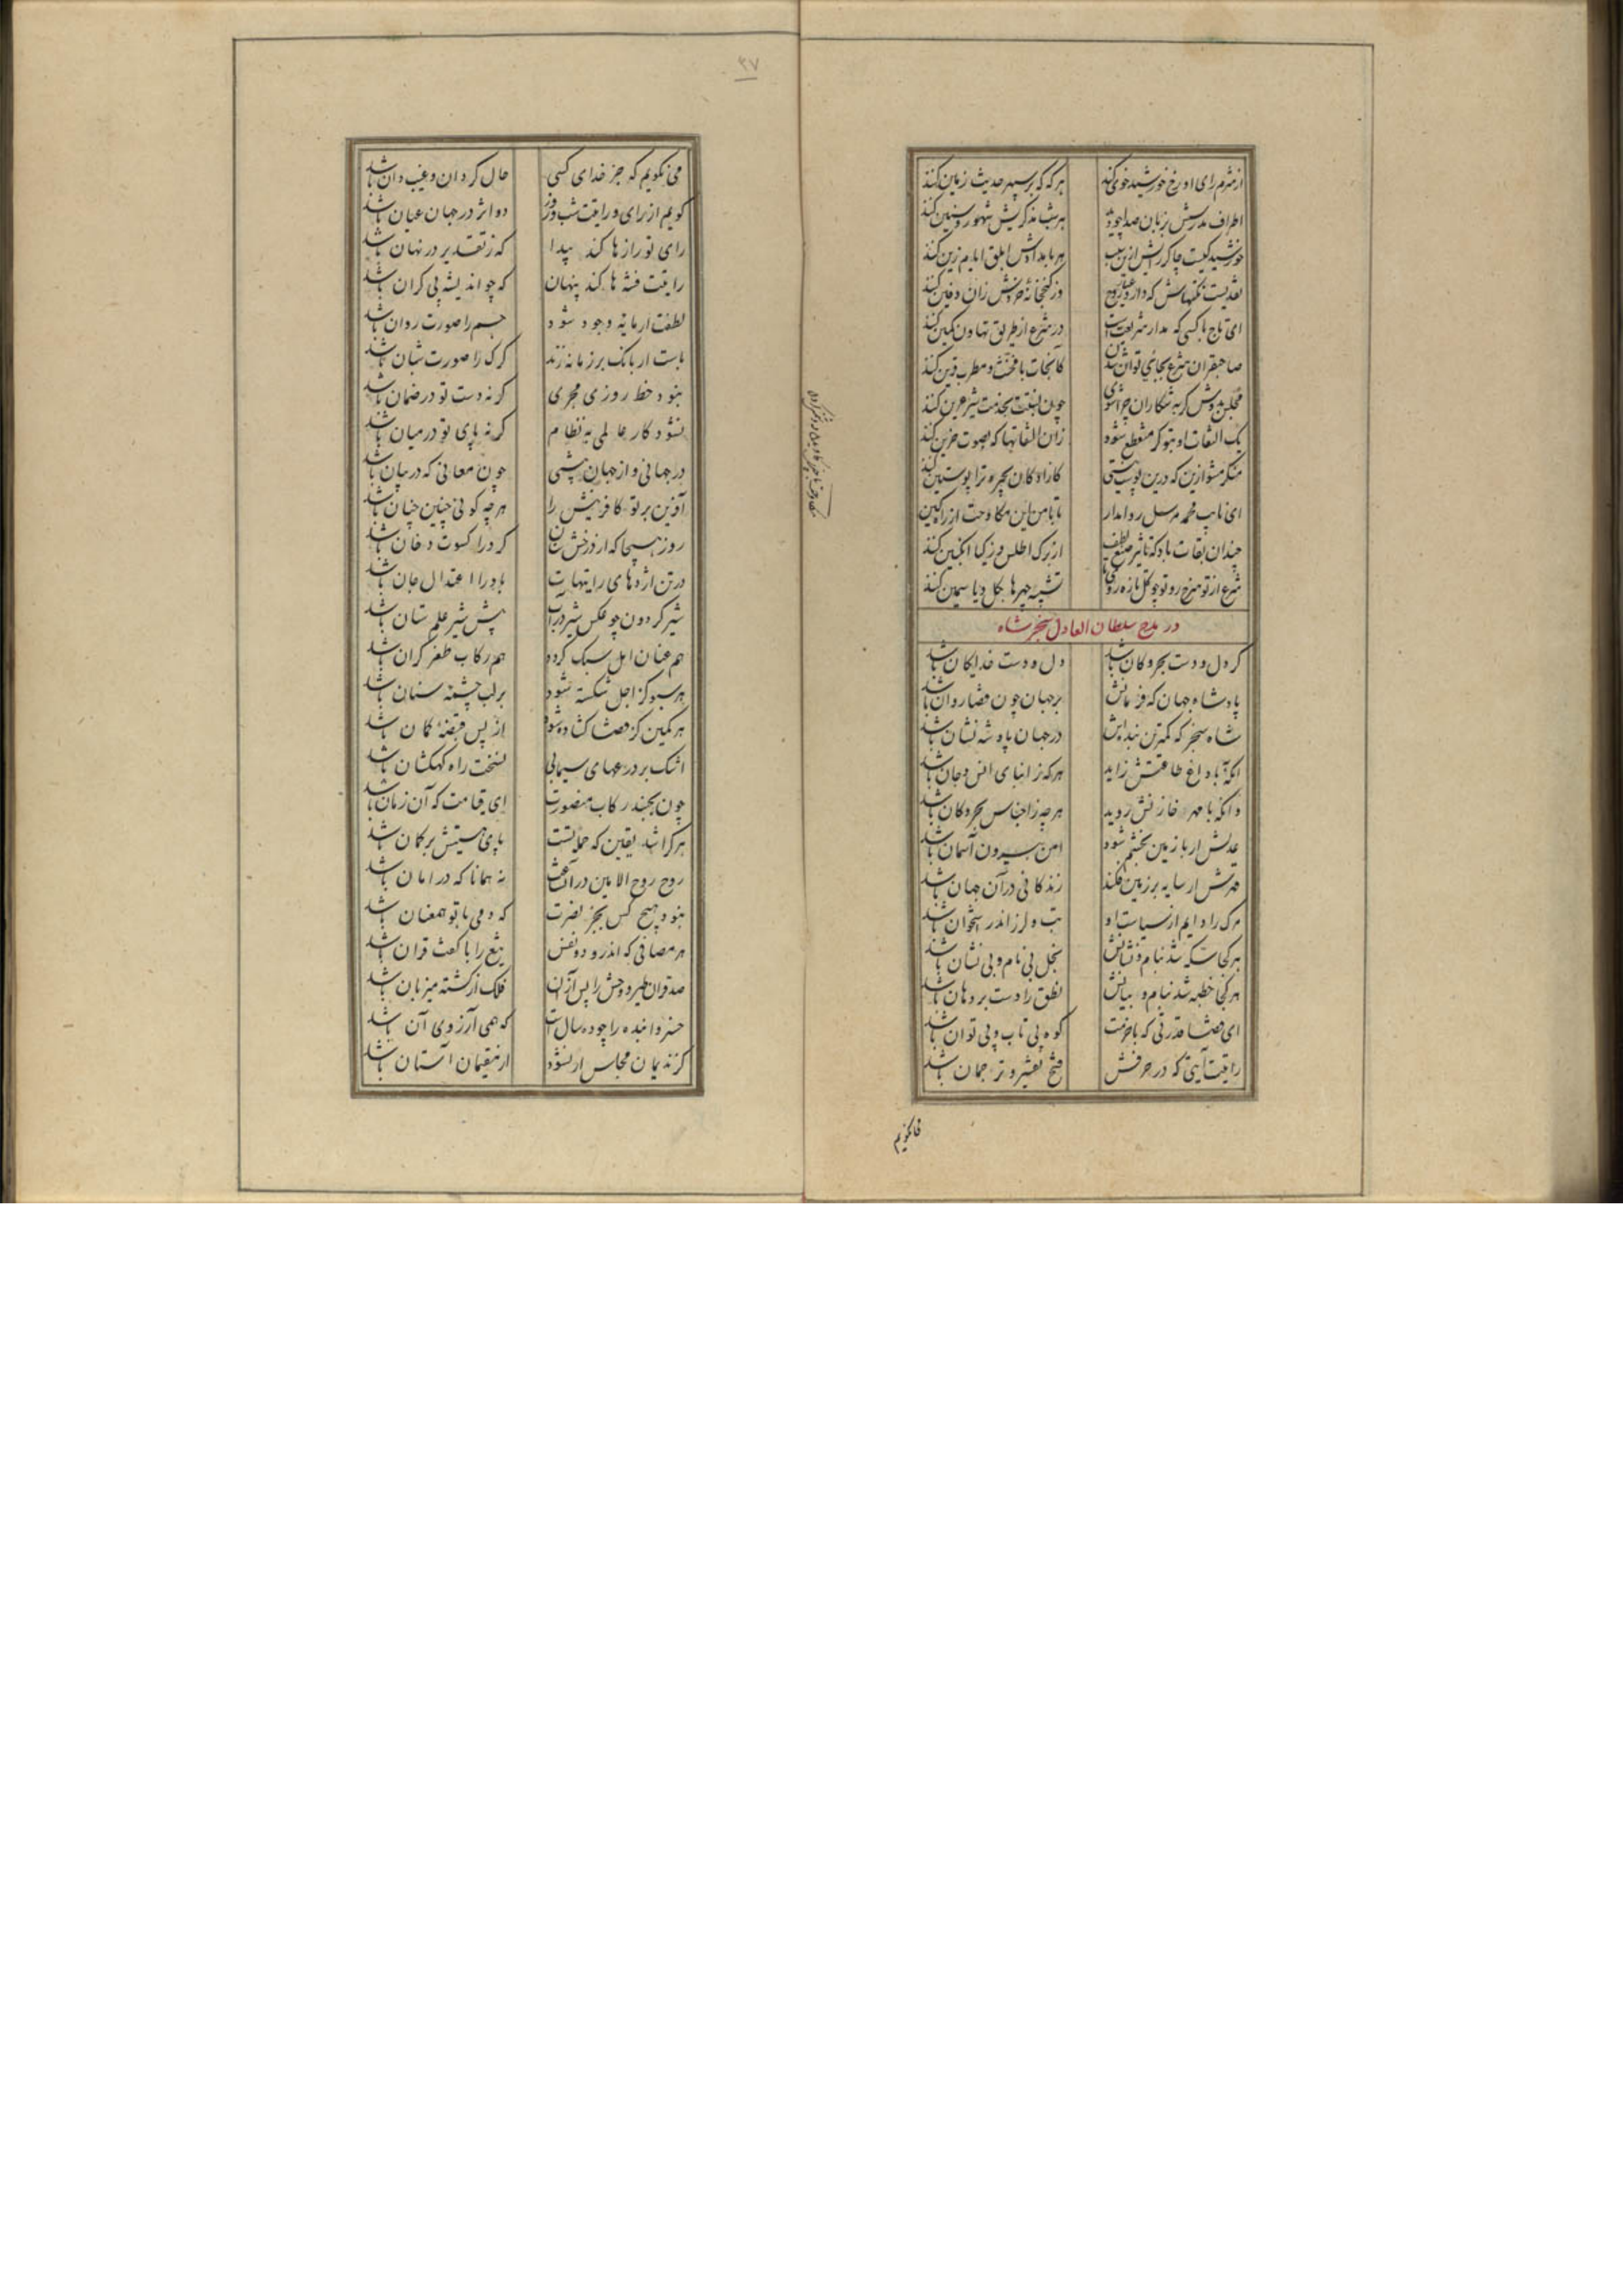 از شرم رای او رخ خورشید خوی کند
هر که که بر سپهر حدیث زمین کند
اطراف مدرسش بزبان صدا چو
هر شب مذکریش شهور و سنین کند
خورشید کیست چاکر رایش ازین سبب
هر بامدادش ابلق ایام زین کند
نقدیست نکتهاش که دارد عیار وحی
در کنجخانه خردش زان دفین کند
ای تاج بالکسی که مدار شریعت
در شرع از طریق تهاون کمین کند
صاحبقران شرع بجائی توان شدن
کانجات با مخنث و مطرب قرین کند
مجلس بدوش کر به شکاران چرا شوی
چون لبتت بخدمت شیر عرین کند
یک التفات او بتو کر منقطع شود
زان التفاتها که بصوت حزین کند
منکر مشو ازین که درین پوستین نیی
کازادکان بچره ترا پوستین کند
ای نایب محمد مرسل روا مدار
تا با من این مکاوحت از راه کین کند
چندان بقات باد که تاثیر صنع لطف
از برک اطلس و ز کیا انکبین کند
شرع از تو سرخ رو تو چو کل تازه روی تا
تشبیه چهرها بکل و یاسمین کند
در مدح سلطان العادل سنجر شاه
کر دل و دست بحر و کان باشد
دل و دست خدایکان باشد
پادشاه جهان که فرمانش
بر جهان چون قضا روان باشد
شاه سنجر که کمترین بنده اش
در جهان پادشه نشان باشد
انکه با داغ طاعتش زاید
هر که ز ابنای انس و جان باشد
وانکه با مهر خازنش روید
هر چه ز اجناس بحر و کان باشد
عدلش ار با زمین بخشم شود
امن بیرون آسمان باشد
قهرش ار سایه بر زمین فکند
زندکانی در آن جهان باشد
مرک را دایم از سیاست او
تب و لرز اندر استخوان باشد
هر کجا سکه شد بنام و نشانش
بخل بی نام و بی نشان باشد
هر کجا خطبه شد بنام و بیانش
نطق را دست بر دهان باشد
ای قضا قدرتی که با حزمت
کوه بی تاب و بی توان باشد
رایتت آیتی که در حرفش
فتح تفسیر و ترجمان باشد
فانکویم
۳۷
می نکویم که جز خدای کسی
حال کردان و غیب دان باشد
کویم از رای و رایتت شب و روز
دو اثر در جهان عیان باشد
رای تو رازها کند پیدا
که ز تقدیر در نهان باشد
رایتت فتنه ها کند پنهان
که چو اندیشه بی کران باشد
لطفت ار مایه وجود شود
جسم را صورت روان باشد
باست ار بانک بر زمانه زند
کرک را صورت شبان باشد
نبود خط روزی مجری
کر نه دست تو در ضمان باشد
نشود کار عالمی به نظام
کر نه پای تو در میان باشد
در جهانی و از جهان پیشی
چون معانی که در بیان باشد
آفرین بر تو کافرینش را
هر چه کوئی چنین چنان باشد
روز هیجا که از درخش سنان
کرد را کسوت دخان باشد
در تن اژدهای رایتهات
باد را اعتدال جان باشد
شیر کردون چو عکس شیر در آب
پیش شیر علم ستان باشد
هم عنان امل سبک کردد
هم رکاب ظفر کران باشد
هر سبو کز اجل شکسته شود
بر لب چشمه سنان باشد
هر کمین کز قضا کشاده شود
از پس قبضه کمان باشد
اشک بر درعهای سیمابی
نسخت راه کهکشان باشد
چون بجنبد رکاب منصورت
ای قیامت که آن زمان باشد
هر کرا شد یقین که حمله تست
پای هستیش بر کمان باشد
روح روح الامین در آن ساعت
نه همانا که در امان باشد
نبود هیچ کس بجز نصرت
که دمی با تو همعنان باشد
هر مصافی که اندرو دو نفس
تیغ را با کفت قران باشد
صد قران طیر و وحش را پس از آن
فلک از کشته میزبان باشد
خسروا بنده را چو ده سال است
که همی آرزوی آن باشد
کز ندیمان مجلس ار نشود
از مقیمان آستان باشد